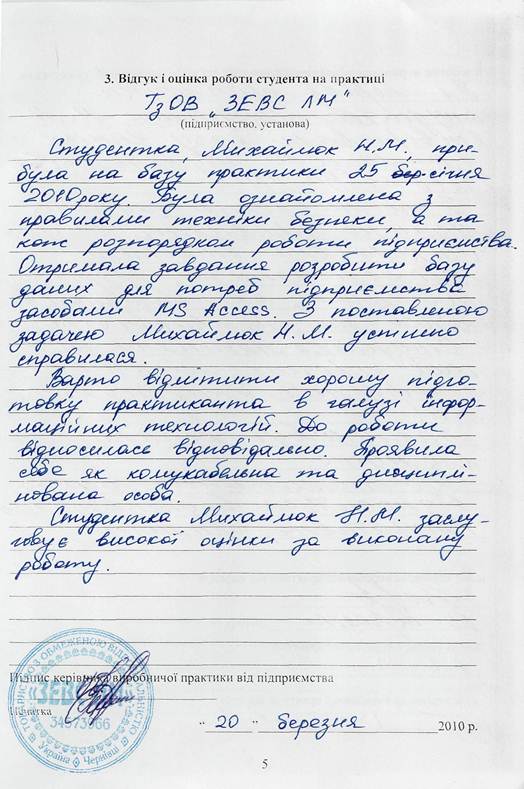 3. Відгук і оцінка роботи студента на практиці
ТзОВ „ЗЕВС ЛМ"
(підприємство, установа)
Студентка, Михаймюк Н.М., при-
була на базу практики 25 січня
2010 року. Була ознайомлена з
правилами техніки безпеки, а та-
кож розпорядком роботи підприємства.
Отримала завдання розробити базу
даних для потреб підприємства
засобами MS Access. З поставленою
задачею Михаймюк Н.М. успішно
справилася.
Варто відмітити хорошу підго-
товку практиканта в галузі інфор-
маційних технологій. До роботи
відносилась відповідально. Проявила
себе як комукабельна та дисциплі-
нована особа.
Студентка Михаймюк Н.М. заслу-
говує високої оцінки за виконану
роботу.
Підпис керівника виробничої практики від підприємства
Печатка
ТОВАРИСТВО З ОБМЕЖЕНОЮ ВІДПОВІДАЛЬНІСТЮ
«ЗЕВС
Україна Чернівці
„ 20 " березня 2010 р.
5